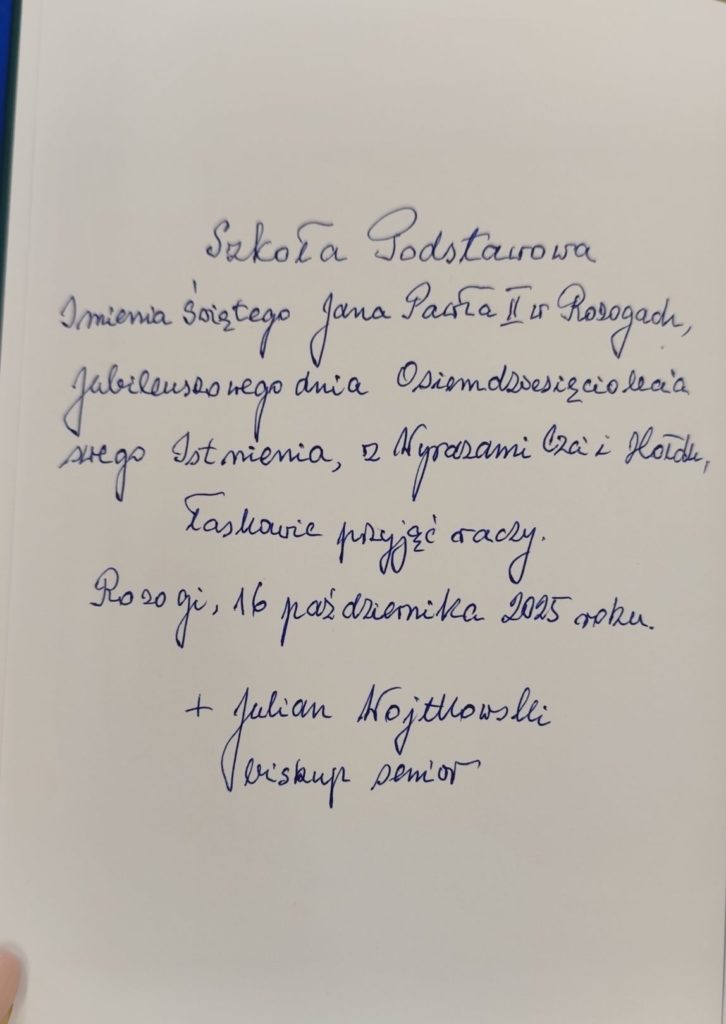 Szkoła Podstawowa
Imienia Świętego Jana Pawła II w Rozogach,
Jubileuszowego dnia Osiemdziesięciolecia
swego Istnienia, z Wyrazami Czci i Hołdu,
Łaskawie przyjąć raczy.
Rozogi, 16 października 2025 roku.
+ Julian Wojtkowski
biskup senior